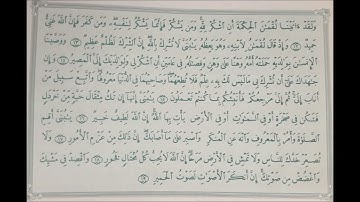 وَلَقَدْ ءَاتَيْنَا لُقْمَٰنَ ٱلْحِكْمَةَ أَنِ ٱشْكُرْ لِلَّهِ وَمَن يَشْكُرْ فَإِنَّمَا يَشْكُرُ لِنَفْسِهِۦ وَمَن كَفَرَ فَإِنَّ ٱللَّهَ غَنِىٌّ
حَمِيدٌ ١٢ وَإِذْ قَالَ لُقْمَٰنُ لِٱبْنِهِۦ وَهُوَ يَعِظُهُۥ يَٰبُنَىَّ لَا تُشْرِكْ بِٱللَّهِ إِنَّ ٱلشِّرْكَ لَظُلْمٌ عَظِيمٌ ١٣ وَوَصَّيْنَا
ٱلْإِنسَٰنَ بِوَٰلِدَيْهِ حَمَلَتْهُ أُمُّهُۥ وَهْنًا عَلَىٰ وَهْنٍ وَفِصَٰلُهُۥ فِى عَامَيْنِ أَنِ ٱشْكُرْ لِى وَلِوَٰلِدَيْكَ إِلَىَّ ٱلْمَصِيرُ ١٤ وَإِن
جَٰهَدَاكَ عَلَىٰٓ أَن تُشْرِكَ بِى مَا لَيْسَ لَكَ بِهِۦ عِلْمٌ فَلَا تُطِعْهُمَا وَصَاحِبْهُمَا فِى ٱلدُّنْيَا مَعْرُوفًا وَٱتَّبِعْ سَبِيلَ مَنْ
أَنَابَ إِلَىَّ ثُمَّ إِلَىَّ مَرْجِعُكُمْ فَأُنَبِّئُكُم بِمَا كُنتُمْ تَعْمَلُونَ ١٥ يَٰبُنَىَّ إِنَّهَآ إِن تَكُ مِثْقَالَ حَبَّةٍ مِّنْ خَرْدَلٍ
فَتَكُن فِى صَخْرَةٍ أَوْ فِى ٱلسَّمَٰوَٰتِ أَوْ فِى ٱلْأَرْضِ يَأْتِ بِهَا ٱللَّهُ إِنَّ ٱللَّهَ لَطِيفٌ خَبِيرٌ ١٦ يَٰبُنَىَّ أَقِمِ
ٱلصَّلَوٰةَ وَأْمُرْ بِٱلْمَعْرُوفِ وَٱنْهَ عَنِ ٱلْمُنكَرِ وَٱصْبِرْ عَلَىٰ مَآ أَصَابَكَ إِنَّ ذَٰلِكَ مِنْ عَزْمِ ٱلْأُمُورِ ١٧ وَلَا
تُصَعِّرْ خَدَّكَ لِلنَّاسِ وَلَا تَمْشِ فِى ٱلْأَرْضِ مَرَحًا إِنَّ ٱللَّهَ لَا يُحِبُّ كُلَّ مُخْتَالٍ فَخُورٍ ١٨ وَٱقْصِدْ فِى مَشْيِكَ
وَٱغْضُضْ مِن صَوْتِكَ إِنَّ أَنكَرَ ٱلْأَصْوَٰتِ لَصَوْتُ ٱلْحَمِيرِ ١٩